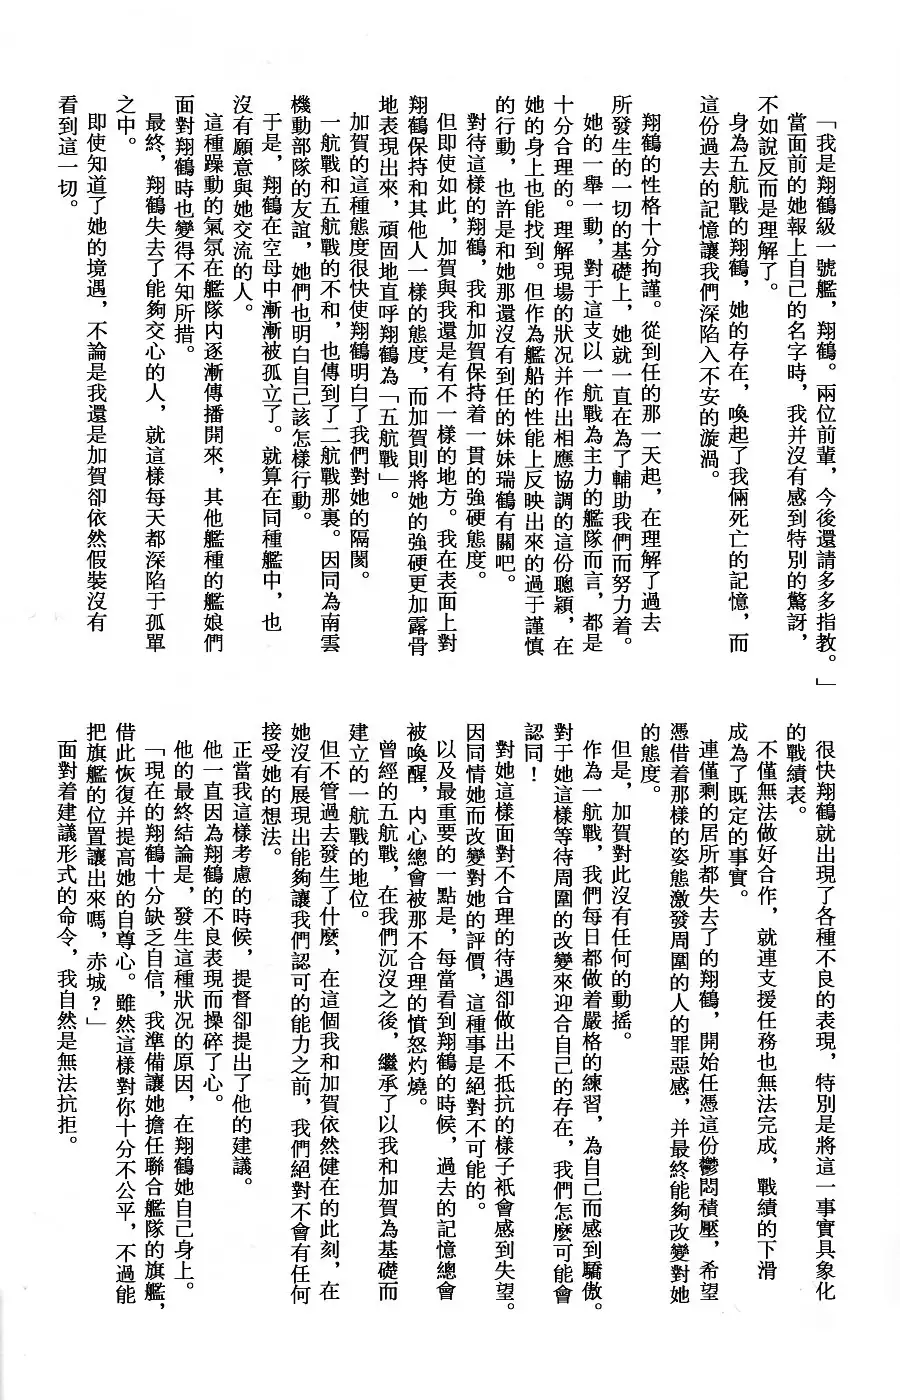 「我是翔鶴級一號艦，翔鶴。兩位前輩，今後還請多多指教。」
當面前的她報上自己的名字時，我并沒有感到特別的驚訝，
不如說反而是理解了。
身為五航戰的翔鶴，她的存在，喚起了我倆死亡的記憶，而
這份過去的記憶讓我們深陷入不安的漩渦。
翔鶴的性格十分拘謹。從到任的那一天起，在理解了過去
所發生的一切的基礎上，她就一直在為了輔助我們而努力着。
她的一舉一動，對于這支以一航戰為主力的艦隊而言，都是
十分合理的。理解現場的狀況并作出相應協調的這份聰穎，在
她的身上也能找到。但作為艦船的性能上反映出來的過于謹慎
的行動，也許是和她那還沒有到任的妹妹瑞鶴有關吧。
對待這樣的翔鶴，我和加賀保持着一貫的強硬態度。
但即使如此，加賀與我還是有不一樣的地方。我在表面上對
翔鶴保持和其他人一樣的態度，而加賀則將她的強硬更加露骨
地表現出來，頑固地直呼翔鶴為「五航戰」。
加賀的這種態度很快使翔鶴明白了我們對她的隔閡。
一航戰和五航戰的不和，也傳到了二航戰那裏。因同為南雲
機動部隊的友誼，她們也明白自己該怎樣行動。
于是，翔鶴在空母中漸漸被孤立了。就算在同種艦中，也
沒有願意與她交流的人。
這種躁動的氣氛在艦隊內逐漸傳播開來，其他艦種的艦娘們
面對翔鶴時也變得不知所措。
最終，翔鶴失去了能夠交心的人，就這樣每天都深陷于孤單
之中。
即使知道了她的境遇，不論是我還是加賀卻依然假裝沒有
看到這一切。
很快翔鶴就出現了各種不良的表現，特別是將這一事實具象化
的戰績表。
不僅無法做好合作，就連支援任務也無法完成，戰績的下滑
成為了既定的事實。
連僅剩的居所都失去了的翔鶴，開始任憑這份鬱悶積壓，希望
憑借着那樣的姿態激發周圍的人的罪惡感，并最終能夠改變對她
的態度。
但是，加賀對此沒有任何的動搖。
作為一航戰，我們每日都做着嚴格的練習，為自己而感到驕傲。
對于她這樣等待周圍的改變來迎合自己的存在，我們怎麼可能會
認同！
對她這樣面對不合理的待遇卻做出不抵抗的樣子衹會感到失望。
因同情她而改變對她的評價，這種事是絕對不可能的。
以及最重要的一點是，每當看到翔鶴的時候，過去的記憶總會
被喚醒，內心總會被那不合理的憤怒灼燒。
曾經的五航戰，在我們沉沒之後，繼承了以我和加賀為基礎而
建立的一航戰的地位。
但不管過去發生了什麼，在這個我和加賀依然健在的此刻，在
她沒有展現出能夠讓我們認可的能力之前，我們絕對不會有任何
接受她的想法。
正當我這樣考慮的時候，提督卻提出了他的建議。
他一直因為翔鶴的不良表現而操碎了心。
他的最終結論是，發生這種狀況的原因，在翔鶴她自己身上。
「現在的翔鶴十分缺乏自信，我準備讓她擔任聯合艦隊的旗艦，
借此恢復并提高她的自尊心。雖然這樣對你十分不公平，不過能
把旗艦的位置讓出來嗎，赤城？」
面對着建議形式的命令，我自然是無法抗拒。